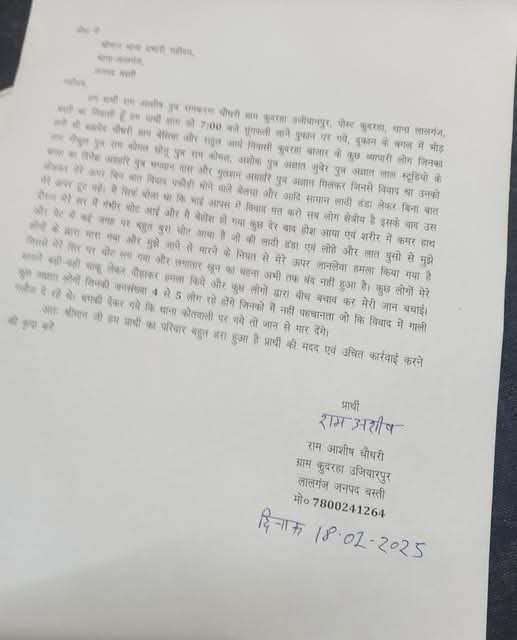 सेवा में
श्रीमान थाना प्रभारी महोदय,
थाना-लालगंज,
जनपद बस्ती
महोदय
हम प्रार्थी राम आशीष पुत्र रामकरण चौधरी ग्राम कुदरहा उजीयानपुर, पोस्ट कुदरहा, थाना लालगंज,
बस्ती का निवासी हूँ हम प्रार्थी शाम को 7:00 बजे मूंगफली लाने दुकान पर गये, दुकान के बगल में भीड़
लगी थी चौधरी ग्राम और राहुल आर्य निवासी कुदरहा बाजार के कुछ व्यापारी लोग जिनका
नाम पुत्र राम कोमल सोनू पुत्र राम कोमल, अशोक पुत्र अज्ञात जुबेर पुत्र अज्ञात लाल स्टूडियो के
बगल का दिनेश अग्रहरि पुत्र भगवान दास और गुलशन अग्रहरि पुत्र अज्ञात मिलकर जिनसे विवाद था उनको
छोड़कर मेरे ऊपर बिन बात विवाद पकौड़ी और आदि सामान लाठी डंडा लेकर बिना बात
मेरे ऊपर टूट पड़े। मैं सिर्फ बोला था कि भाई आपस में विवाद मत करो सब लोग क्षेत्रीय है इसके बाद उस
दौरान मेरे सर में गंभीर चोट आई और मैं बेहोश हो गया कुछ देर बाद होश आया एवं शरीर में कमर हाथ
और पेट में कई जगह पर बहुत बुरा चोट आया है जो की लाठी डंडा एवं लोहे और लात घुसो से मुझे
लोगों के द्वारा मारा गया और मुझे जाने से मारने के नियत से मेरे ऊपर जानलेवा हमला किया गया है
जिससे मेरे सिर पर चोट लग गया और लगातार खून का बहना अभी तक बंद नहीं हुआ है। कुछ लोगों मेरे
सामने बड़ी-बड़ी चाकू लेकर दौड़ाकर हमला किये और कुछ लोगों द्वारा बीच बचाव कर मेरी जान बचाई।
कुछ अज्ञात लोगों जिनकी जनसंख्या 4 से 5 लोग रहे होंगे जिनको मैं नहीं पहचानता जो कि विवाद में गाली
गलौज दे रहे थे। धमकी देकर गये कि थाना कोतवाली पर गये तो जान से मार देंगे।
अतः श्रीमान जी हम प्रार्थी का परिवार बहुत डरा हुआ है प्रार्थी की मदद एवं उचित कार्रवाई करने
की कृपा करें
प्रार्थी
राम अशीष
राम आशीष चौधरी
ग्राम कुदरहा उजियारपुर
लालगंज जनपद बस्ती
मो० 7800241264
दिनांक 18-02-2025